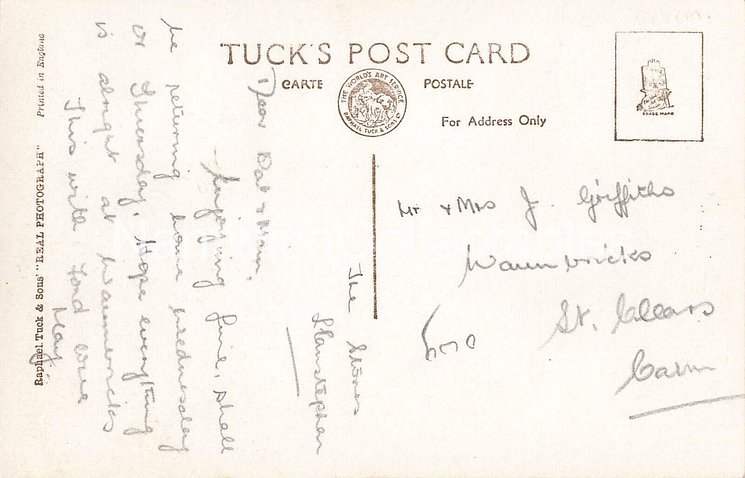 TUCK'S POST CARD
CARTE POSTALE
THE WORLD'S ART SERVICE
RAPHAEL TUCK & SONS LTD
For Address Only
TRADE MARK
Printed in England
Raphael Tuck & Sons' "REAL PHOTOGRAPH"
The Stores
Llanstephan
Dear Dat & Mam,
Enjoying fine, shall
be returning home wednesday
or Thursday, Hope everything
is alright at Waunbricks
This with fond love
May
Mr & Mrs J. Griffiths
Waunbricks
St. Clears
Carm